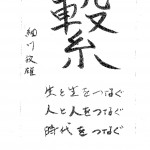 繋
細川俊雄
生と生をつなぐ
人と人をつなぐ
時代をつなぐ